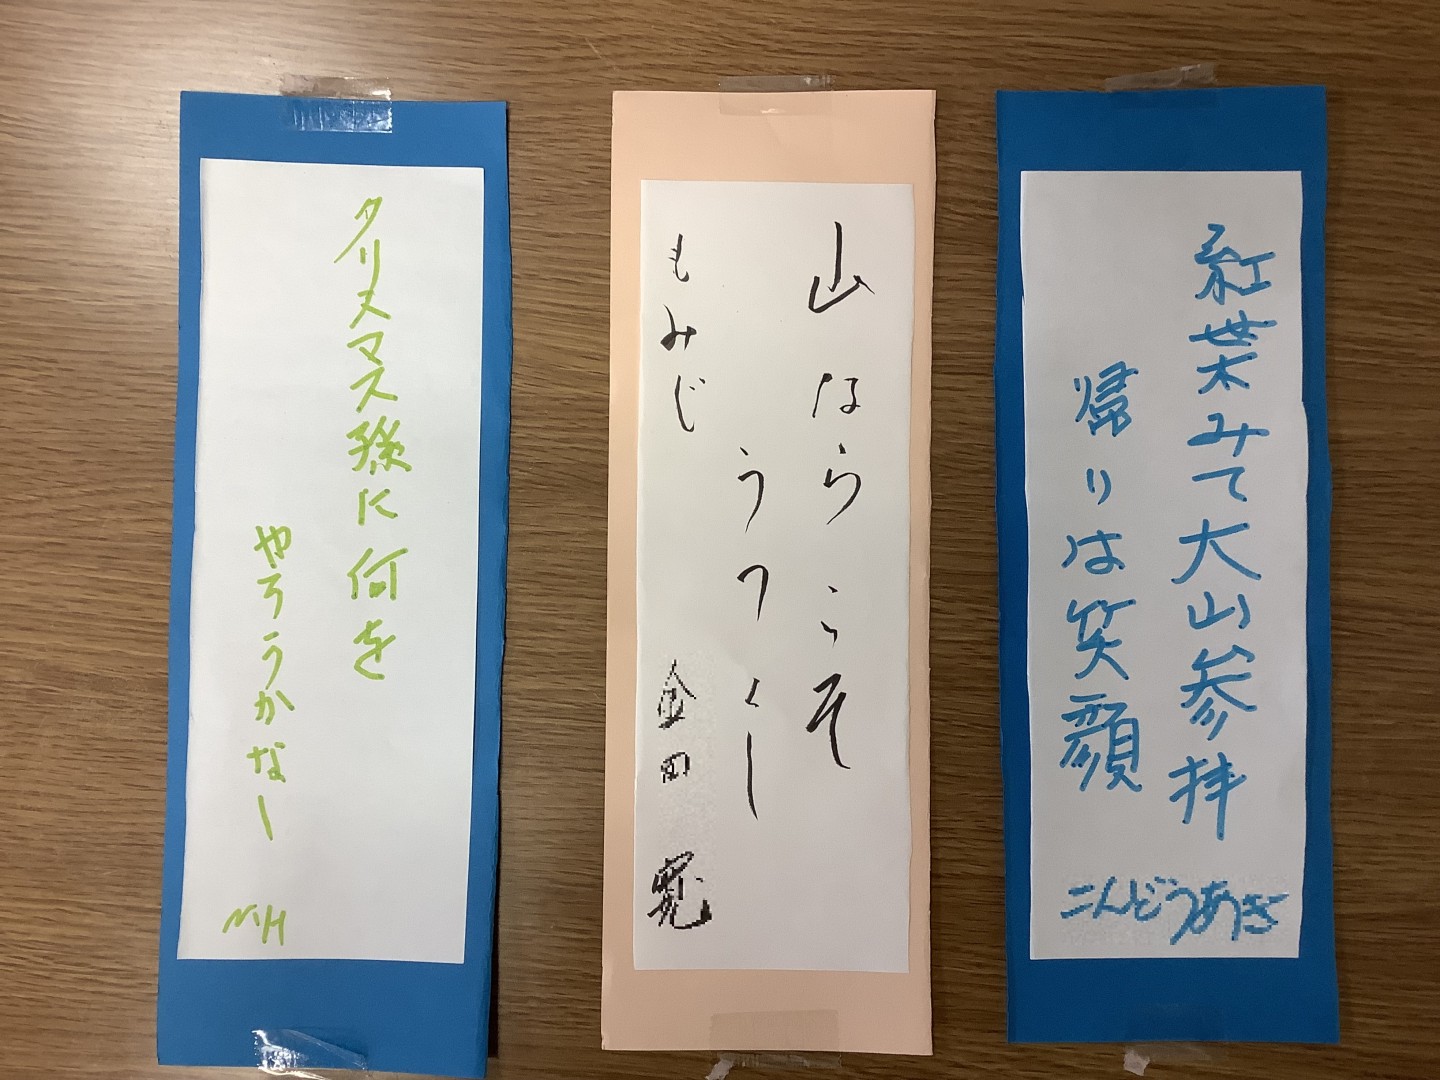 紅葉みて大山参拝
帰りは笑顔
こんどうあき
山ならこそ
うつくし
もみじ
金田 寛
クリスマス孫に何を
やろうかなー
MH